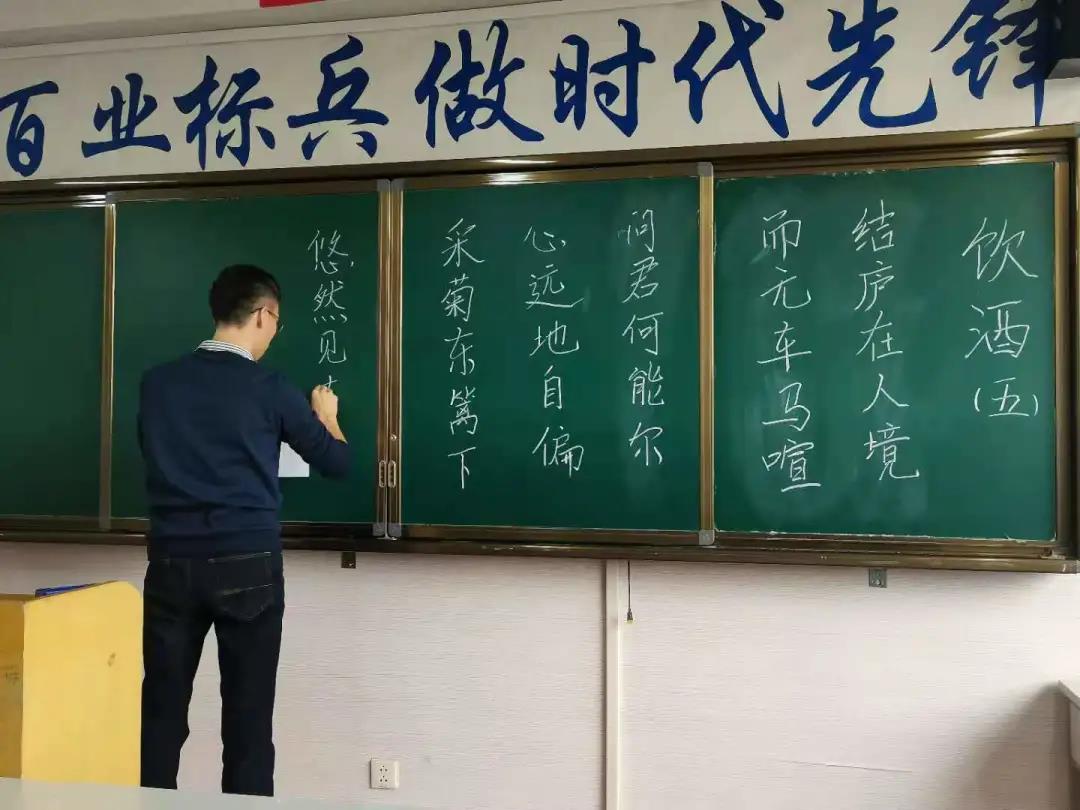 百业标兵做时代先锋
饮酒(五)
结庐在人境
而无车马喧
问君何能尔
心远地自偏
采菊东篱下
悠然见